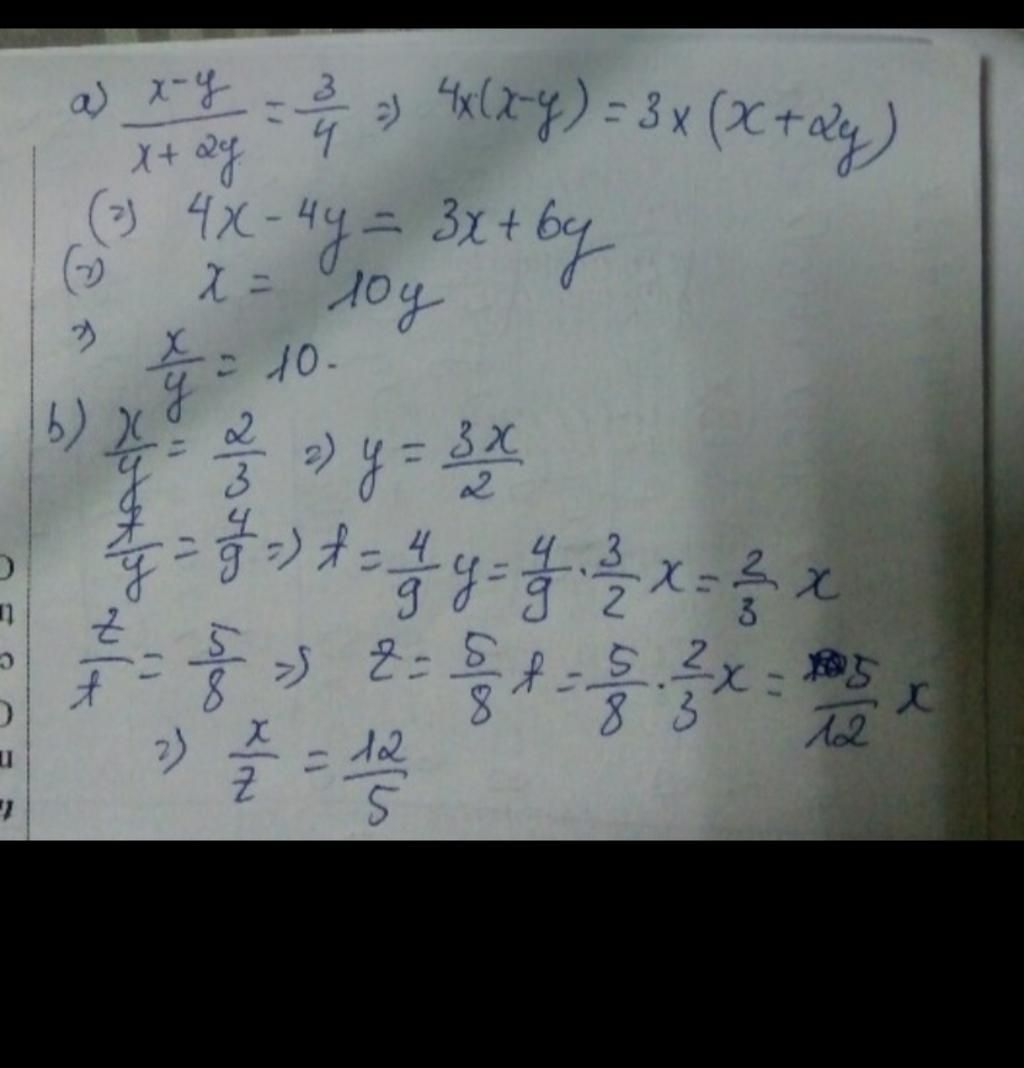 a) \frac{x-y}{x+2y} = \frac{3}{4} => 4x(x-y) = 3x(x+2y)
(=) 4x - 4y = 3x + 6y
(=) x = 10y
=) \frac{x}{y} = 10.
b) \frac{x}{y} = \frac{2}{3} => y = \frac{3x}{2}
\frac{t}{y} = \frac{4}{9} => t = \frac{4}{9} y = \frac{4}{9} . \frac{3}{2} x = \frac{2}{3} x
\frac{z}{t} = \frac{5}{8} => z = \frac{5}{8} t = \frac{5}{8} . \frac{2}{3} x = \frac{5}{12} x
=) \frac{x}{z} = \frac{12}{5}